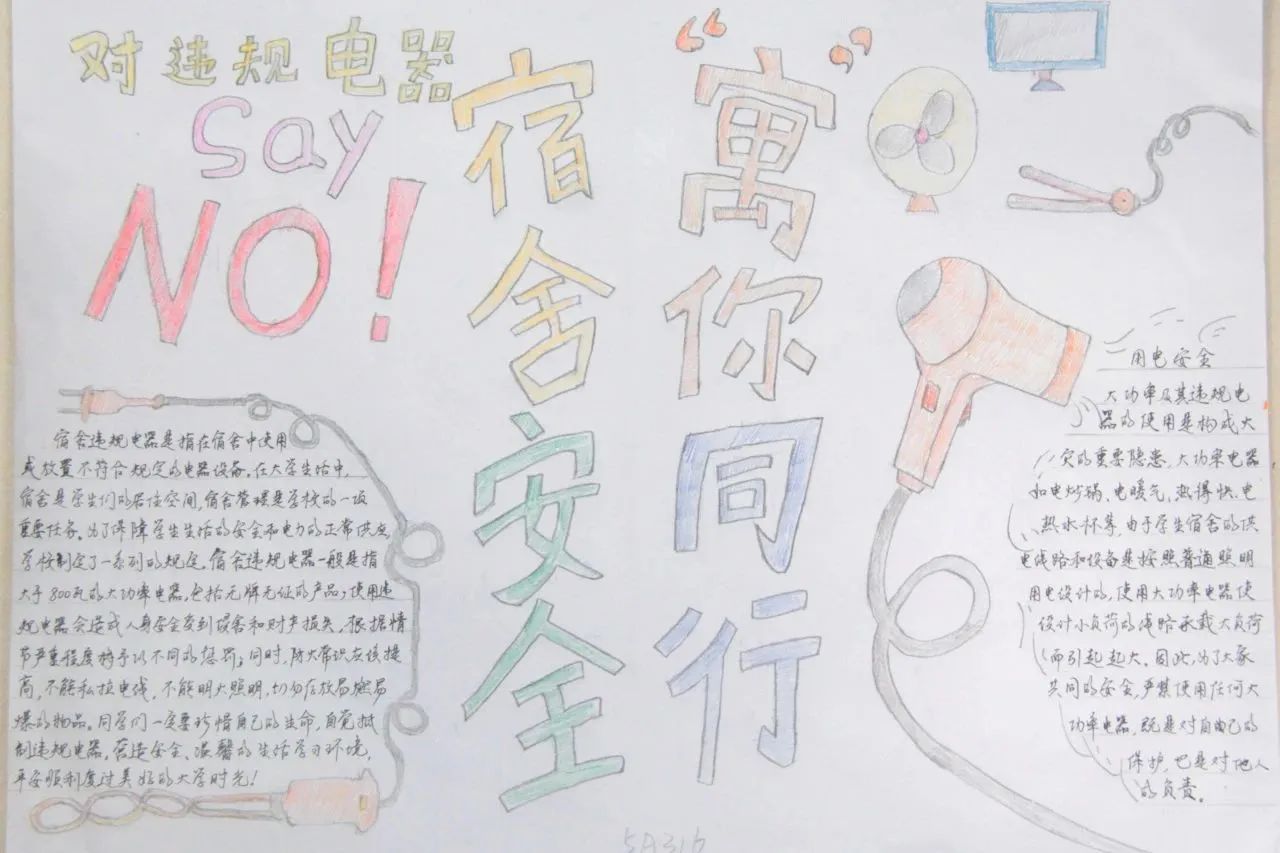 对违规电器
say
NO!
宿舍安全
“寓”
你同行
宿舍违规电器是指在宿舍中使用
或放置不符合规定的电器设备。在大学生活中,
宿舍是学生们的居住空间,宿舍管理是学校的一项
重要任务。为了保障学生生活的安全和电力的正常供应,
学校制定了一系列的规定。宿舍违规电器一般是指
大于800瓦的大功率电器,包括无牌无证的产品,使用违
规电器会造成人身安全受到损害和财产损失,根据情
节严重程度将予以不同的惩罚;同时,防火常识应该提
高,不能私拉电线,不能明火照明,切勿存放易燃易
爆的物品。同学们一定要珍惜自己的生命,自觉抵
制违规电器,营造安全、温馨的生活学习环境,
平安顺利度过美好的大学时光!
用电安全
大功率及其违规电
器的使用是构成火
灾的重要隐患,大功率电器
和电炒锅、电暖气、热得快、电
热水杯等,由于学生宿舍的供
电线路和设备是按照普通照明
用电设计的,使用大功率电器使
设计小负荷的线路承载大负荷
而引起起火。因此,为了大家
共同的安全,严禁使用任何大
功率电器,既是对自己的
保护,也是对他人
的负责。
5A316